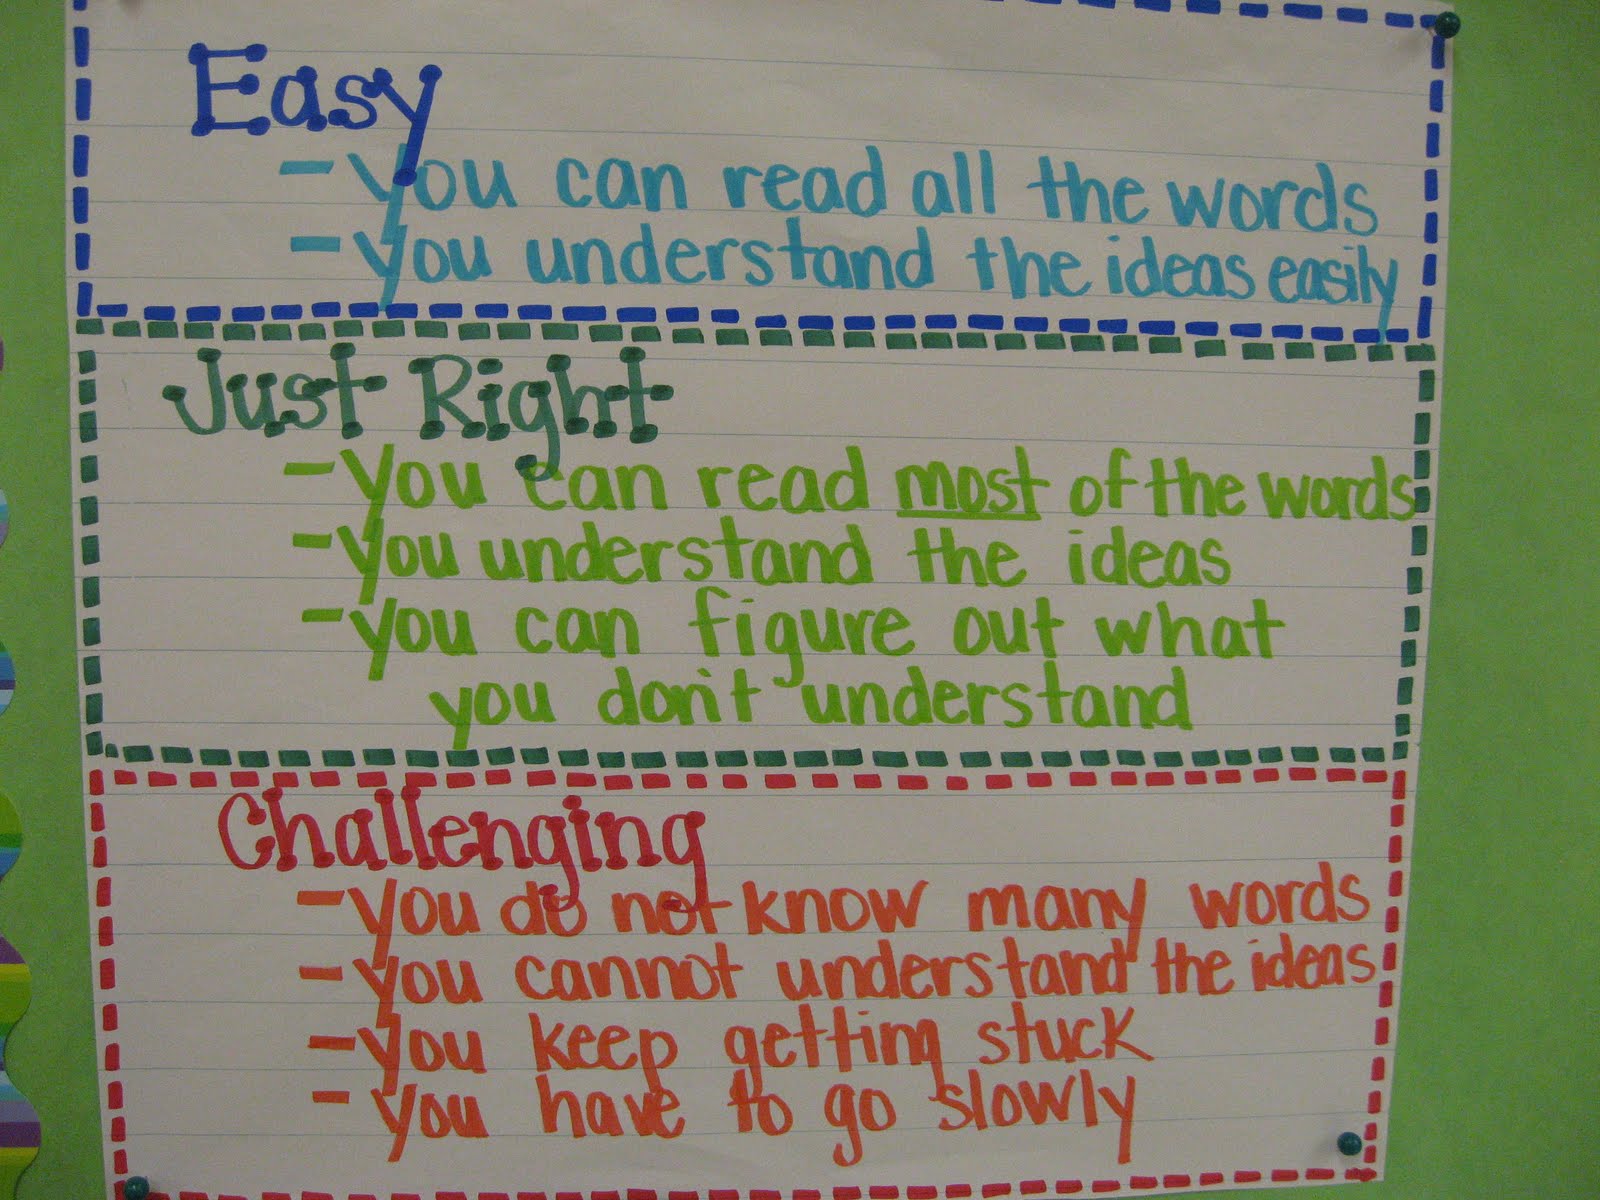 Easy
- You can read all the words
- You understand the ideas easily
Just Right
- You can read most of the words
- You understand the ideas
- You can figure out what
you don't understand
Challenging
- You do not know many words
- You cannot understand the ideas
- You keep getting stuck
- You have to go slowly